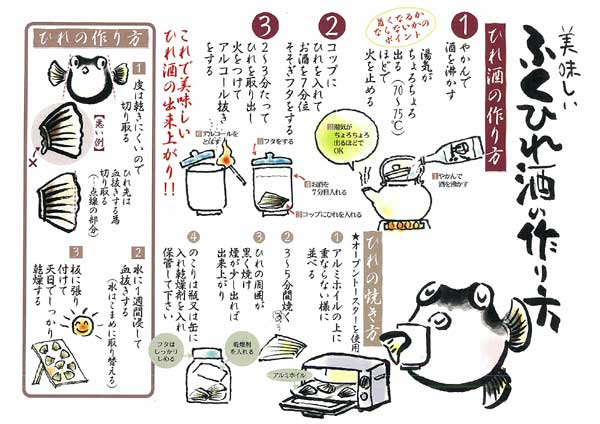 美味しい
ふくひれ酒の作り方
ひれ酒の作り方
1
やかんで
酒を沸かす
湯気が
ちょろちょろ
出る(70〜75℃)
ほどで
火を止める
臭くなるか
ならないかの
ポイント
2
コップに
ひれを入れて
お酒を7分位
そそぎフタをする
3
2〜3分たって
ひれを取り出し
火をつけて
アルコール抜き
をする
これで美味しい
ひれ酒の出来上がり!!
1やかんで
酒を沸かす
2湯気が
ちょろちょろ
出るほどで
OK
3コップにひれを入れる
4お酒を
7分目入れる
5フタをする
アルコールを
とばす
ひれの焼き方
★オーブントースターを使用
1
アルミホイルの上に
重ならない様に
並べる
2
3〜5分間焼く
3
ひれの周囲が
黒く焼け
煙が少し出れば
出来上がり
4
のこりは瓶又は缶に
入れ乾燥剤を入れ
保管して下さい
アルミホイル
乾燥剤
を入れる
フタは
しっかり
しめる
ひれの作り方
1
皮は乾きにくいので
切り取る
【悪い例】
ひれ先は
血抜きする為
切り取る
(点線の部分)
2
水に1週間浸して
血抜きする
(水はこまめに取り替える)
3
板に張り
付けて
天日でしっかり
乾燥する